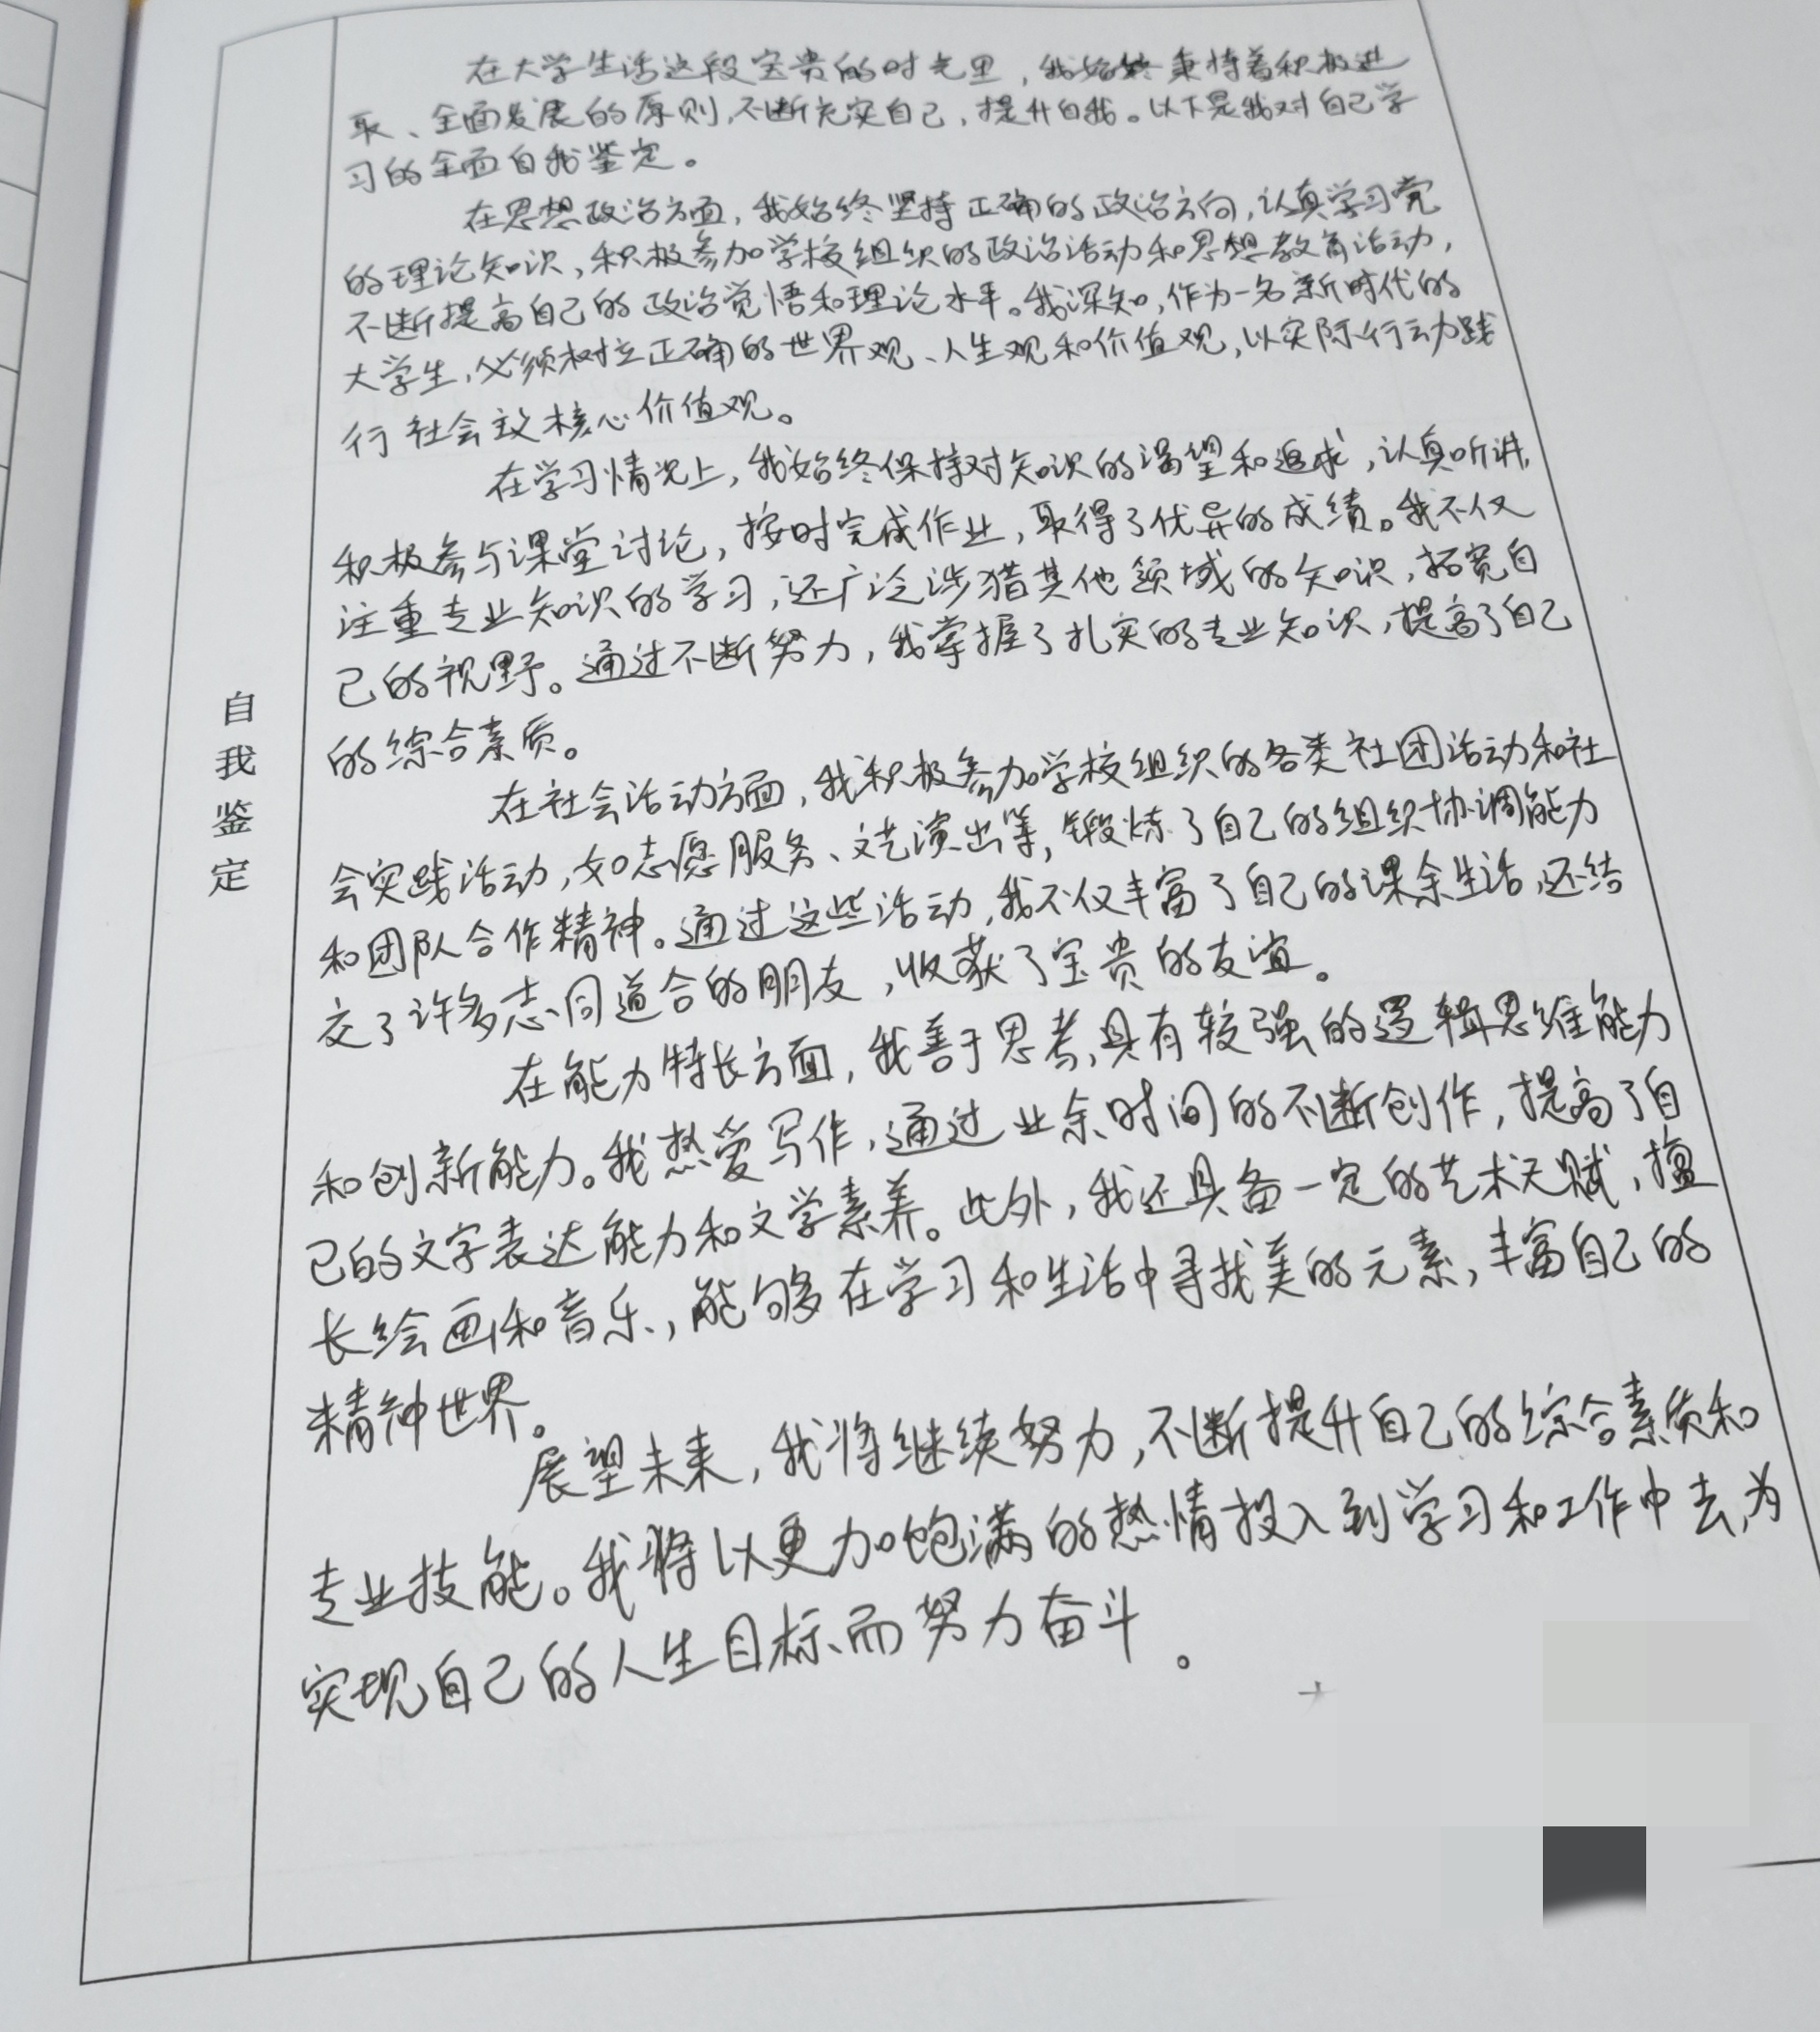 自我鉴定
在大学生活这段宝贵的时光里，我始终秉持着积极进
取、全面发展的原则，不断充实自己，提升自我。以下是我对自己学
习的全面自我鉴定。
在思想政治方面，我始终坚持正确的政治方向，认真学习党
的理论知识，积极参加学校组织的政治活动和思想教育活动，
不断提高自己的政治觉悟和理论水平。我深知，作为一名新时代的
大学生，必须树立正确的世界观、人生观和价值观，以实际行动践
行社会主义核心价值观。
在学习情况上，我始终保持对知识的渴望和追求，认真听讲，
积极参与课堂讨论，按时完成作业，取得了优异的成绩。我不仅
注重专业知识的学习，还广泛涉猎其他领域的知识，拓宽自
己的视野。通过不断努力，我掌握了扎实的专业知识，提高了自己
的综合素质。
在社会活动方面，我积极参加学校组织的各类社团活动和社
会实践活动，如志愿服务、文艺演出等，锻炼了自己的组织协调能力
和团队合作精神。通过这些活动，我不仅丰富了自己的课余生活，还结
交了许多志同道合的朋友，收获了宝贵的友谊。
在能力特长方面，我善于思考，具有较强的逻辑思维能力
和创新能力。我热爱写作，通过业余时间的不断创作，提高了自
己的文字表达能力和文学素养。此外，我还具备一定的艺术天赋，擅
长绘画和音乐，能够在学习和生活中寻找美的元素，丰富自己的
精神世界。
展望未来，我将继续努力，不断提升自己的综合素质和
专业技能。我将以更加饱满的热情投入到学习和工作中去，为
实现自己的人生目标而努力奋斗。